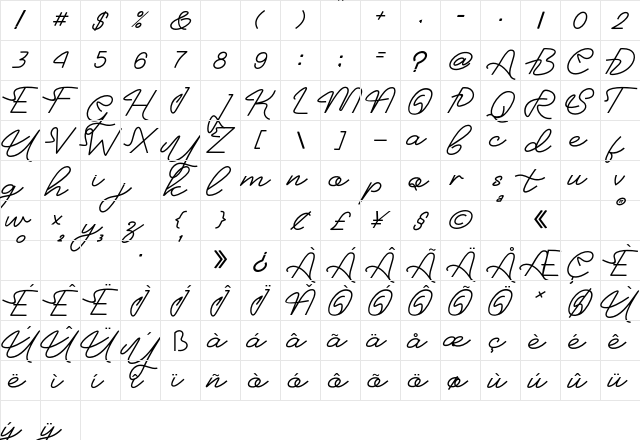 ! # $ % & ( ) + . - . / 0 2
3 4 5 6 7 8 9 : ; = ? @ A B C D
E F G H I J K L M N O P Q R S T
U V W X Y Z [ \ ] – a b c d e f
g h i j k l m n o p q r s t u v
w x y z { } ₡ £ ¥ § © «
º ² ³ ¹ ®
· » ¿ À Á Â Ã Ä Å Æ Ç È
É Ê Ë Ì Í Î Ï Ñ Ò Ó Ô Õ Ö × Ø Ù
Ú Û Ü Ý ß à á â ã ä å æ ç è é ê
ë ì í î ï ñ ò ó ô õ ö ø ù ú û ü
ý ÿ